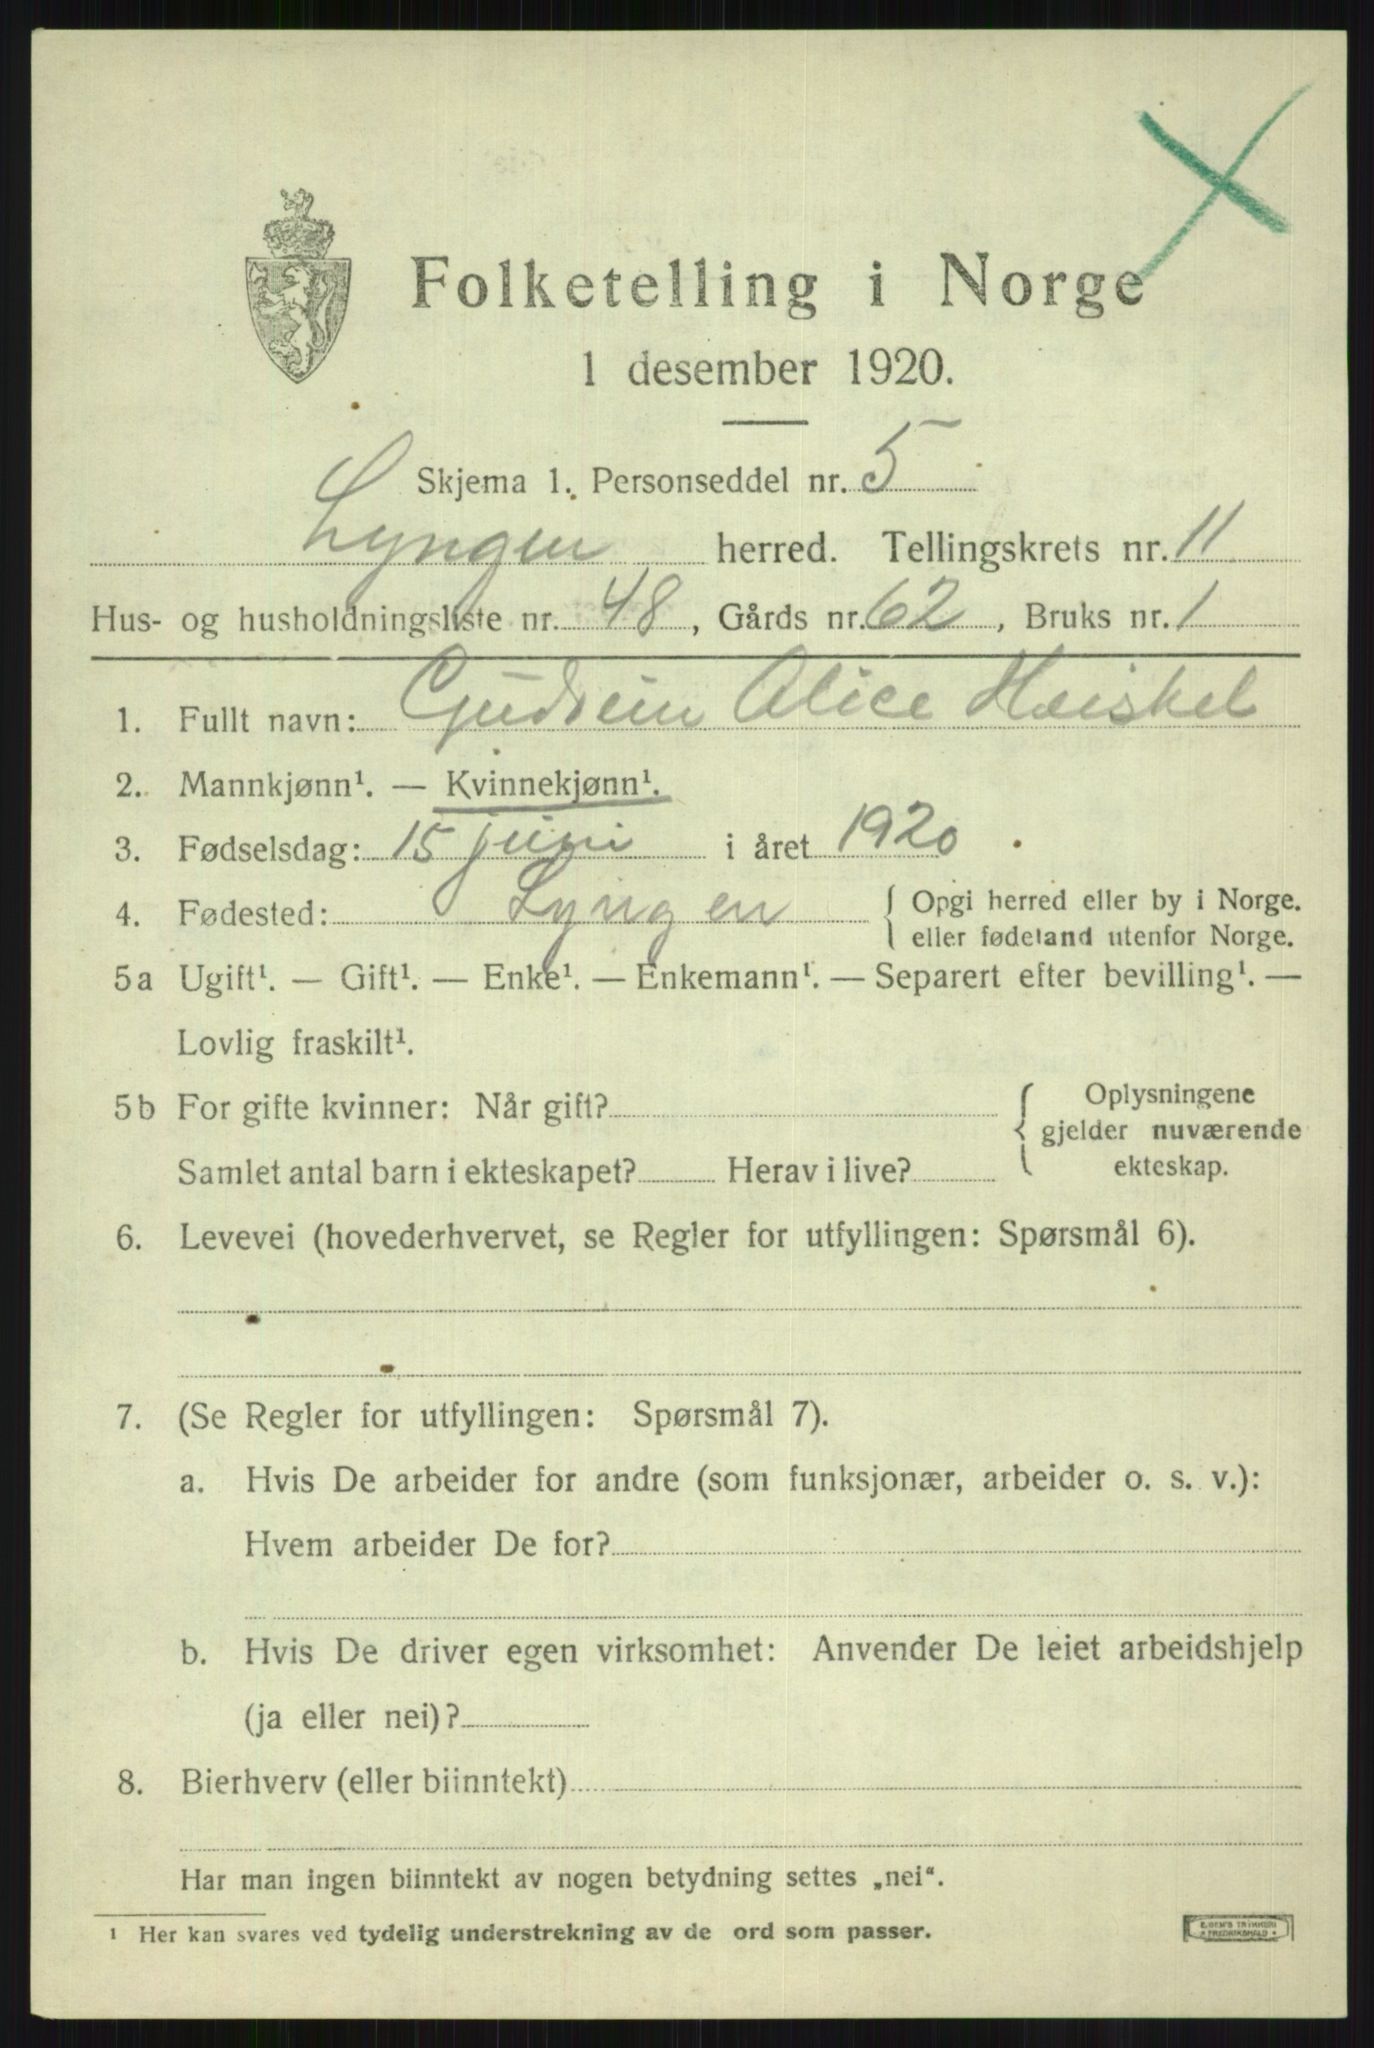 Folketelling i Norge
1 desember 1920.
Skjema 1. Personseddel nr. 5
Lyngen herred. Tellingskrets nr. 11
Hus- og husholdningsliste nr. 48, Gårds nr. 62, Bruks nr. 1
1. Fullt navn: Alice
2. Mannkjønn¹. — Kvinnekjønn¹.
3. Fødselsdag: 15 juni i året 1920
4. Fødested: Lyngen { Opgi herred eller by i Norge.
eller fødeland utenfor Norge.
5a Ugift¹. — Gift¹. — Enke¹. — Enkemann¹. — Separert efter bevilling¹. —
Lovlig fraskilt¹.
5b For gifte kvinner: Når gift? { Oplysningene
gjelder nuværende
Samlet antal barn i ekteskapet? Herav i live? ekteskap.
6. Levevei (hovederhvervet, se Regler for utfyllingen: Spørsmål 6).
7. (Se Regler for utfyllingen: Spørsmål 7).
a. Hvis De arbeider for andre (som funksjonær, arbeider o. s. v.):
Hvem arbeider De for?
b. Hvis De driver egen virksomhet: Anvender De leiet arbeidshjelp
(ja eller nei)?
8. Bierhverv (eller biinntekt)
Har man ingen biinntekt av nogen betydning settes „nei“.
¹ Her kan svares ved tydelig understrekning av de ord som passer.